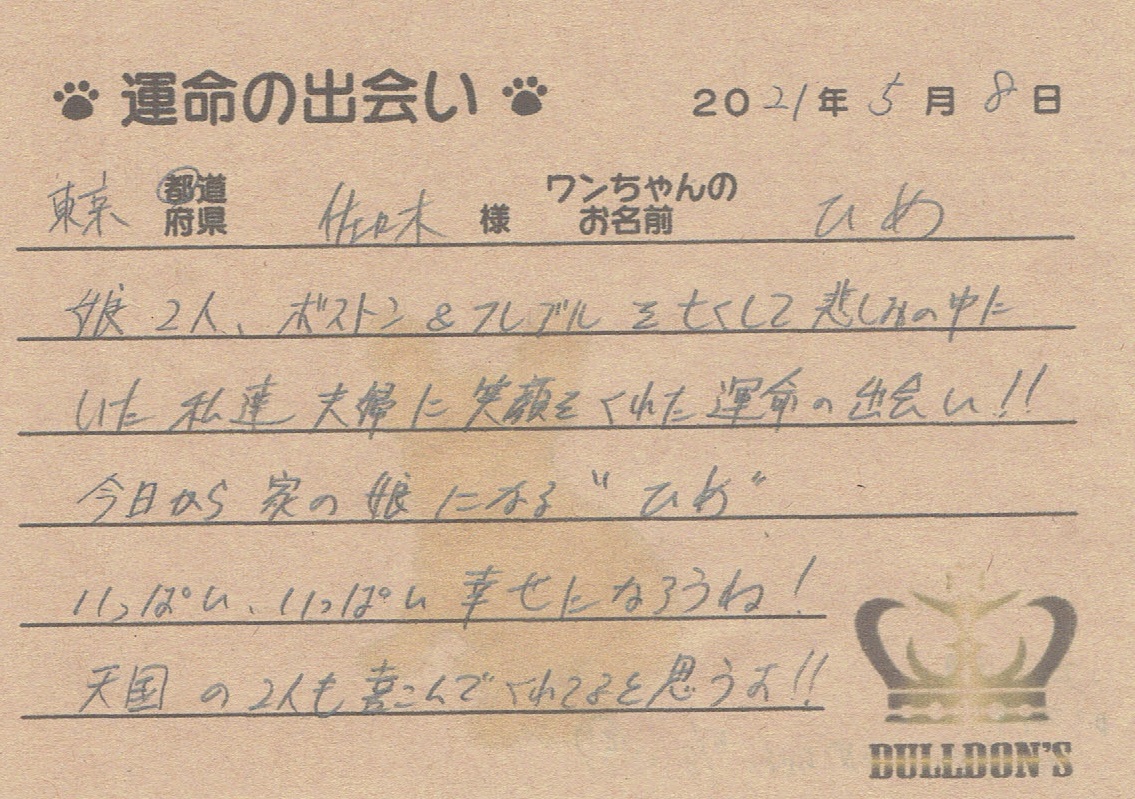 運命の出会い 2021年5月8日
東京 都道府県 佐々木 様 ワンちゃんのお名前 ひめ
娘2人、ボストン&フレブルを亡くして悲しみの中に
いた私達夫婦に笑顔をくれた運命の出会い!!
今日から家の娘になる“ひめ”
いっぱい、いっぱい幸せになろうね!
天国の2人も喜こんでくれてると思うよ!!
BULLDON'S